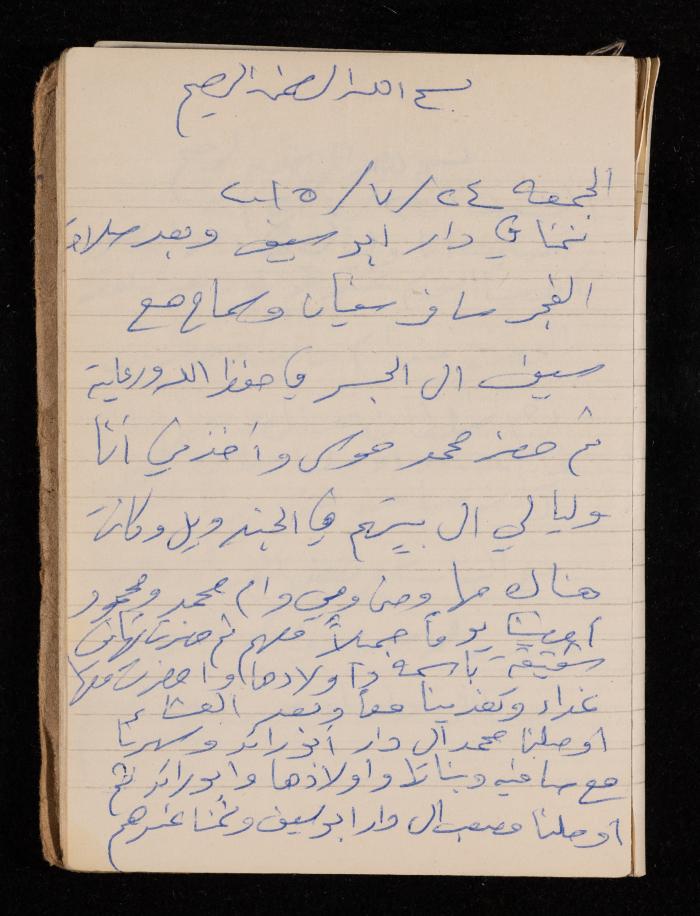 بسم الله الرحمن الرحيم
الجمعه ٢٤/٧/٢٠١٥
نمنا في دار ابو سيف وبعد صلاة
الفجر سافر سفيان وسماح مع
سيف الى الجسر في حفظ الله ورعايته
ثم حضر محمد موسى وأخذني أنا
وليالي الى بيتهم في الجندويل وكانت
هناك مها ومي وام محمد ومحمود
أمضينا يوماً جميلاً معهم ثم حضرت نهاي
شقيقة باسمة وأولادها واحضرت معها
غداء وتغدينا معاً وبعد العشاء
أوصلنا محمد الى دار أبو رائد وسهرنا
مع صافيه وبناتها وأولادها وأبو رائد ثم
أوصلنا مصعب الى دار ابو سيف ونمنا عندهم